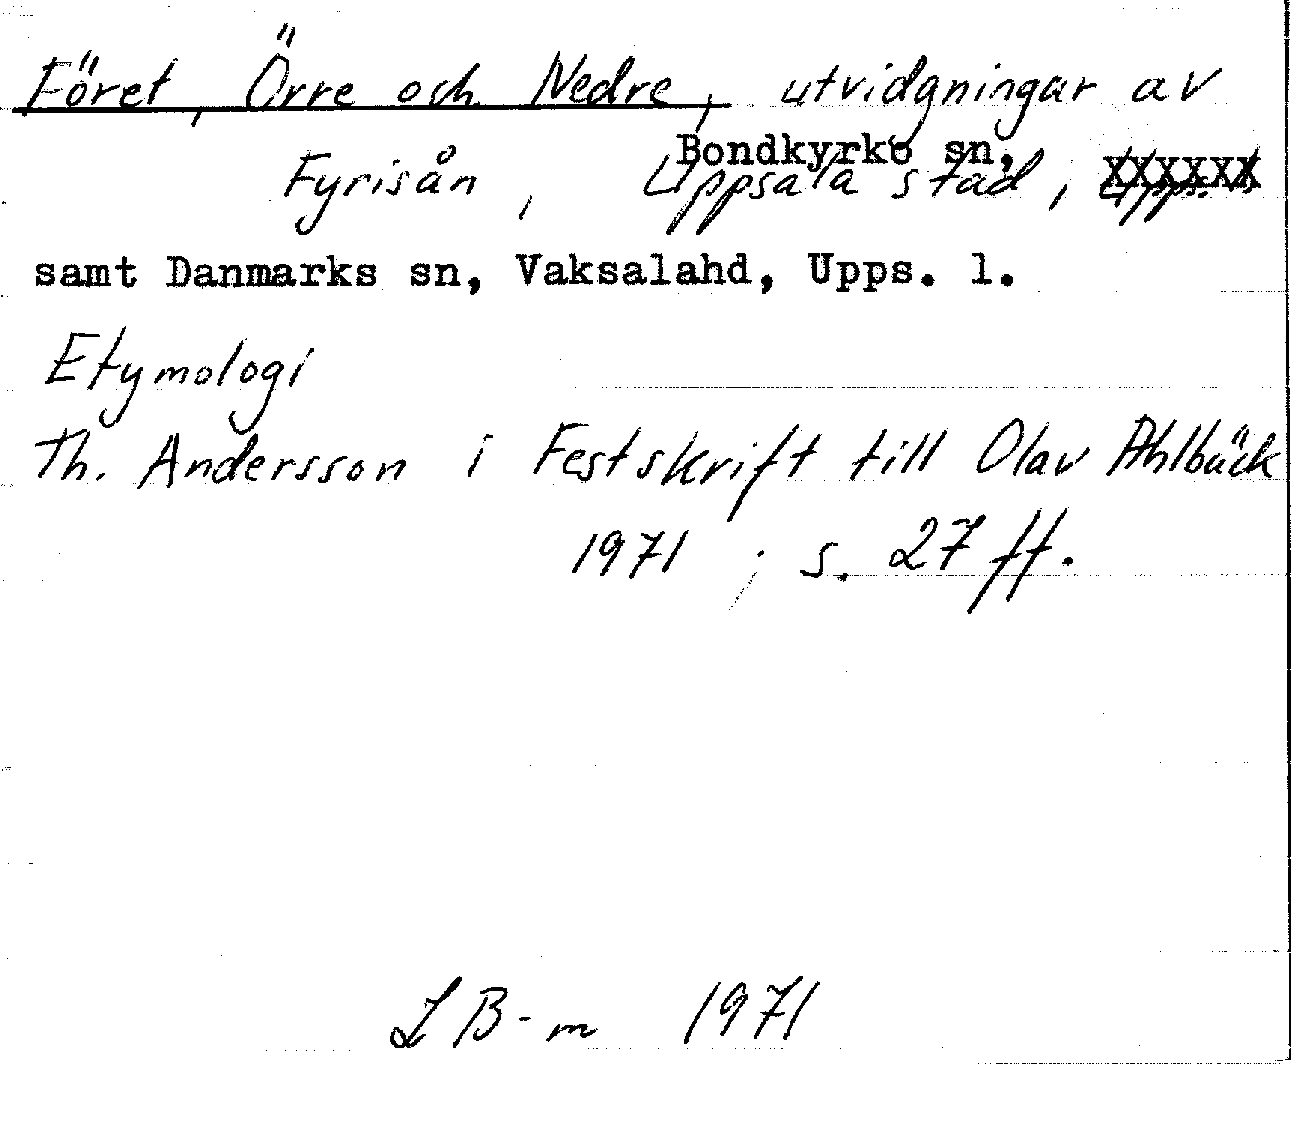 Föret, Örre och Nedre, utvidgningar av
Bondkyrko sn,
Fyrisån, Uppsala stad,
samt Danmarks sn, Vaksalahd, Upps. l.
Etymologi
Th. Andersson i Festskrift till Olav Ahlbäck
1971, s. 27 ff.
L B-m 1971